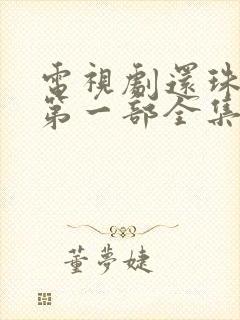 電視劇還珠
第一部全集
董夢婕